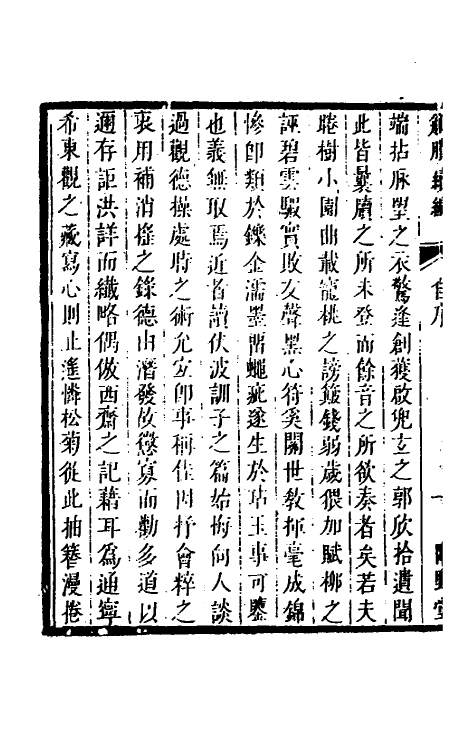 觚賸續編 自序
端拈脈望之衣驚逢創獲啟兜玄之郭欣拾遺聞
此皆曩牘之所未登而餘音之所欲奏者矣若夫
睠樹小園曲載寵桃之謗簸錢弱歲猥加賦柳之
誣碧雲騢實敗友聲墨心符奚關世敎揮毫成錦
慘卽類於鑠金濡墨酣蠅疵遂生於玷玉事可鑒
也義無取焉近者讀伏波訓子之篇始悔向人談
過觀德操處時之術允宜卽事稱佳因抒會粹之
衷用補消搖之錄德由潛發故懲寡而勸多道以
邇存詎洪詳而纖略偶倣西齋之記藉耳爲通寧
希東觀之藏寫心則止遙憐松菊從此抽簪漫捲